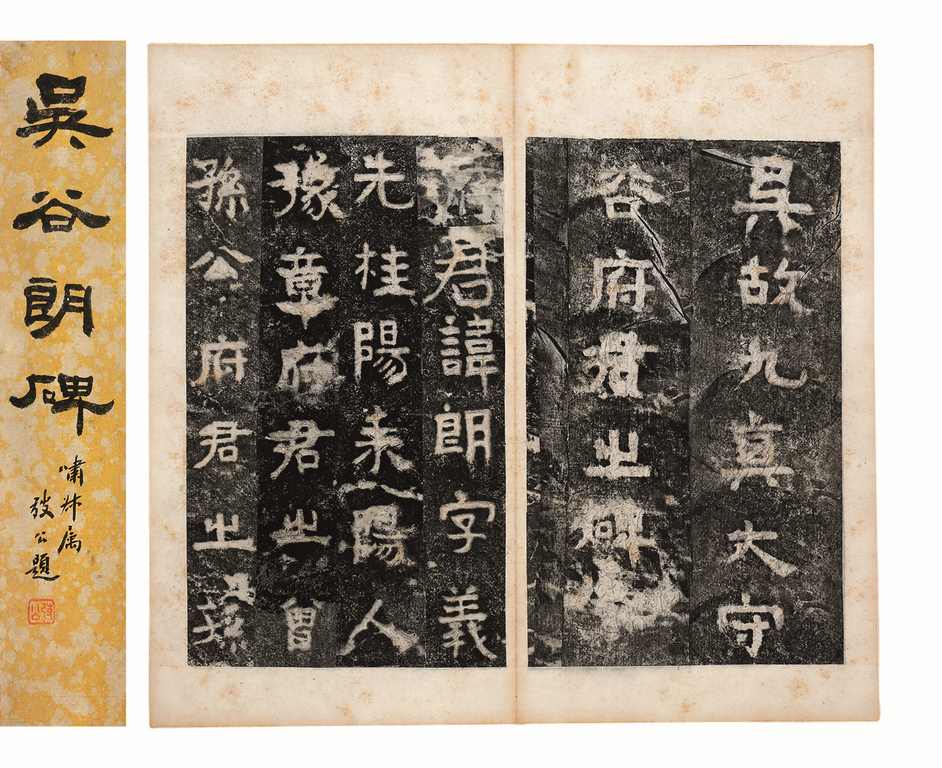 吳谷朗碑
嘯 属
弢公題
吳故九真大守
谷府君之碑
府君諱朗字義
先桂陽耒陽人
豫章府君之曾
孫公府君之孫